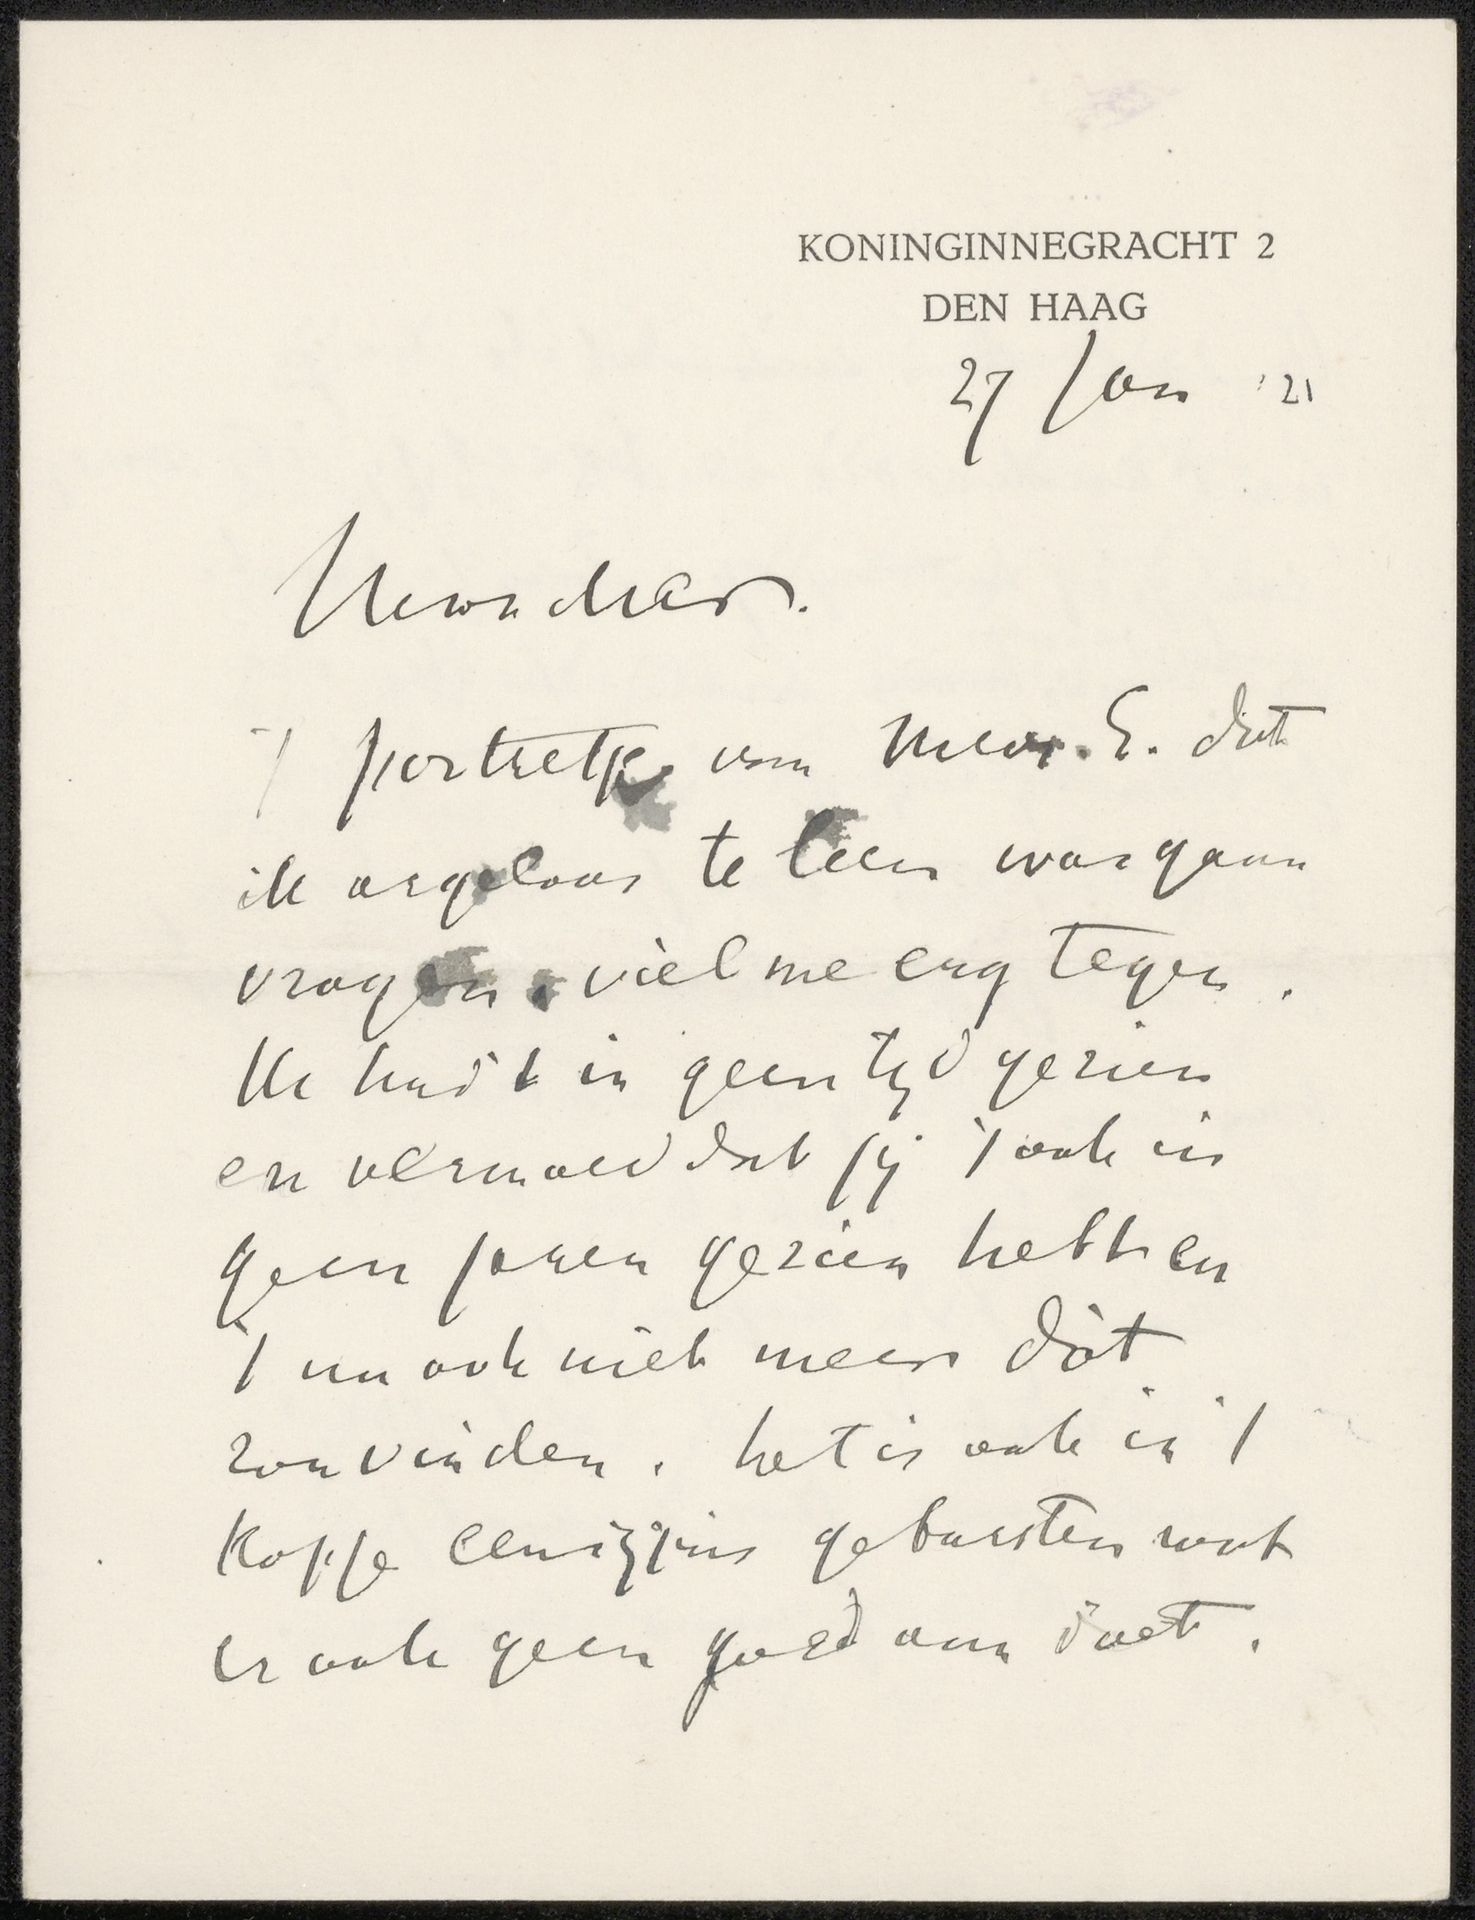 KONINGINNEGRACHT 2
DEN HAAG
27 Jan '21
't portretje van Mevr. E. dat
ik argeloos te leen was gaan
vragen, viel me erg tegen.
Ik had 't in geen tijd gezien
en vermoed dat jij 't ook in
geen jaren gezien hebt en
't nu ook niet meer dàt
zou vinden. het is ook in 't
kopje eenigzins gebarsten wat
er ook geen goed aan doet.